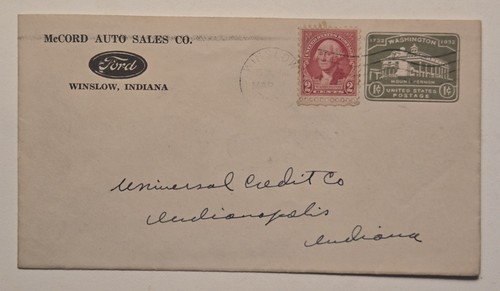 McCORD AUTO SALES CO.
Ford
WINSLOW, INDIANA
UNITED STATES POSTAGE
2 CENTS 2
1732 WASHINGTON 1932
MOUNT VERNON
1¢ UNITED STATES POSTAGE 1¢
Universal Credit Co
Indianapolis
Indiana